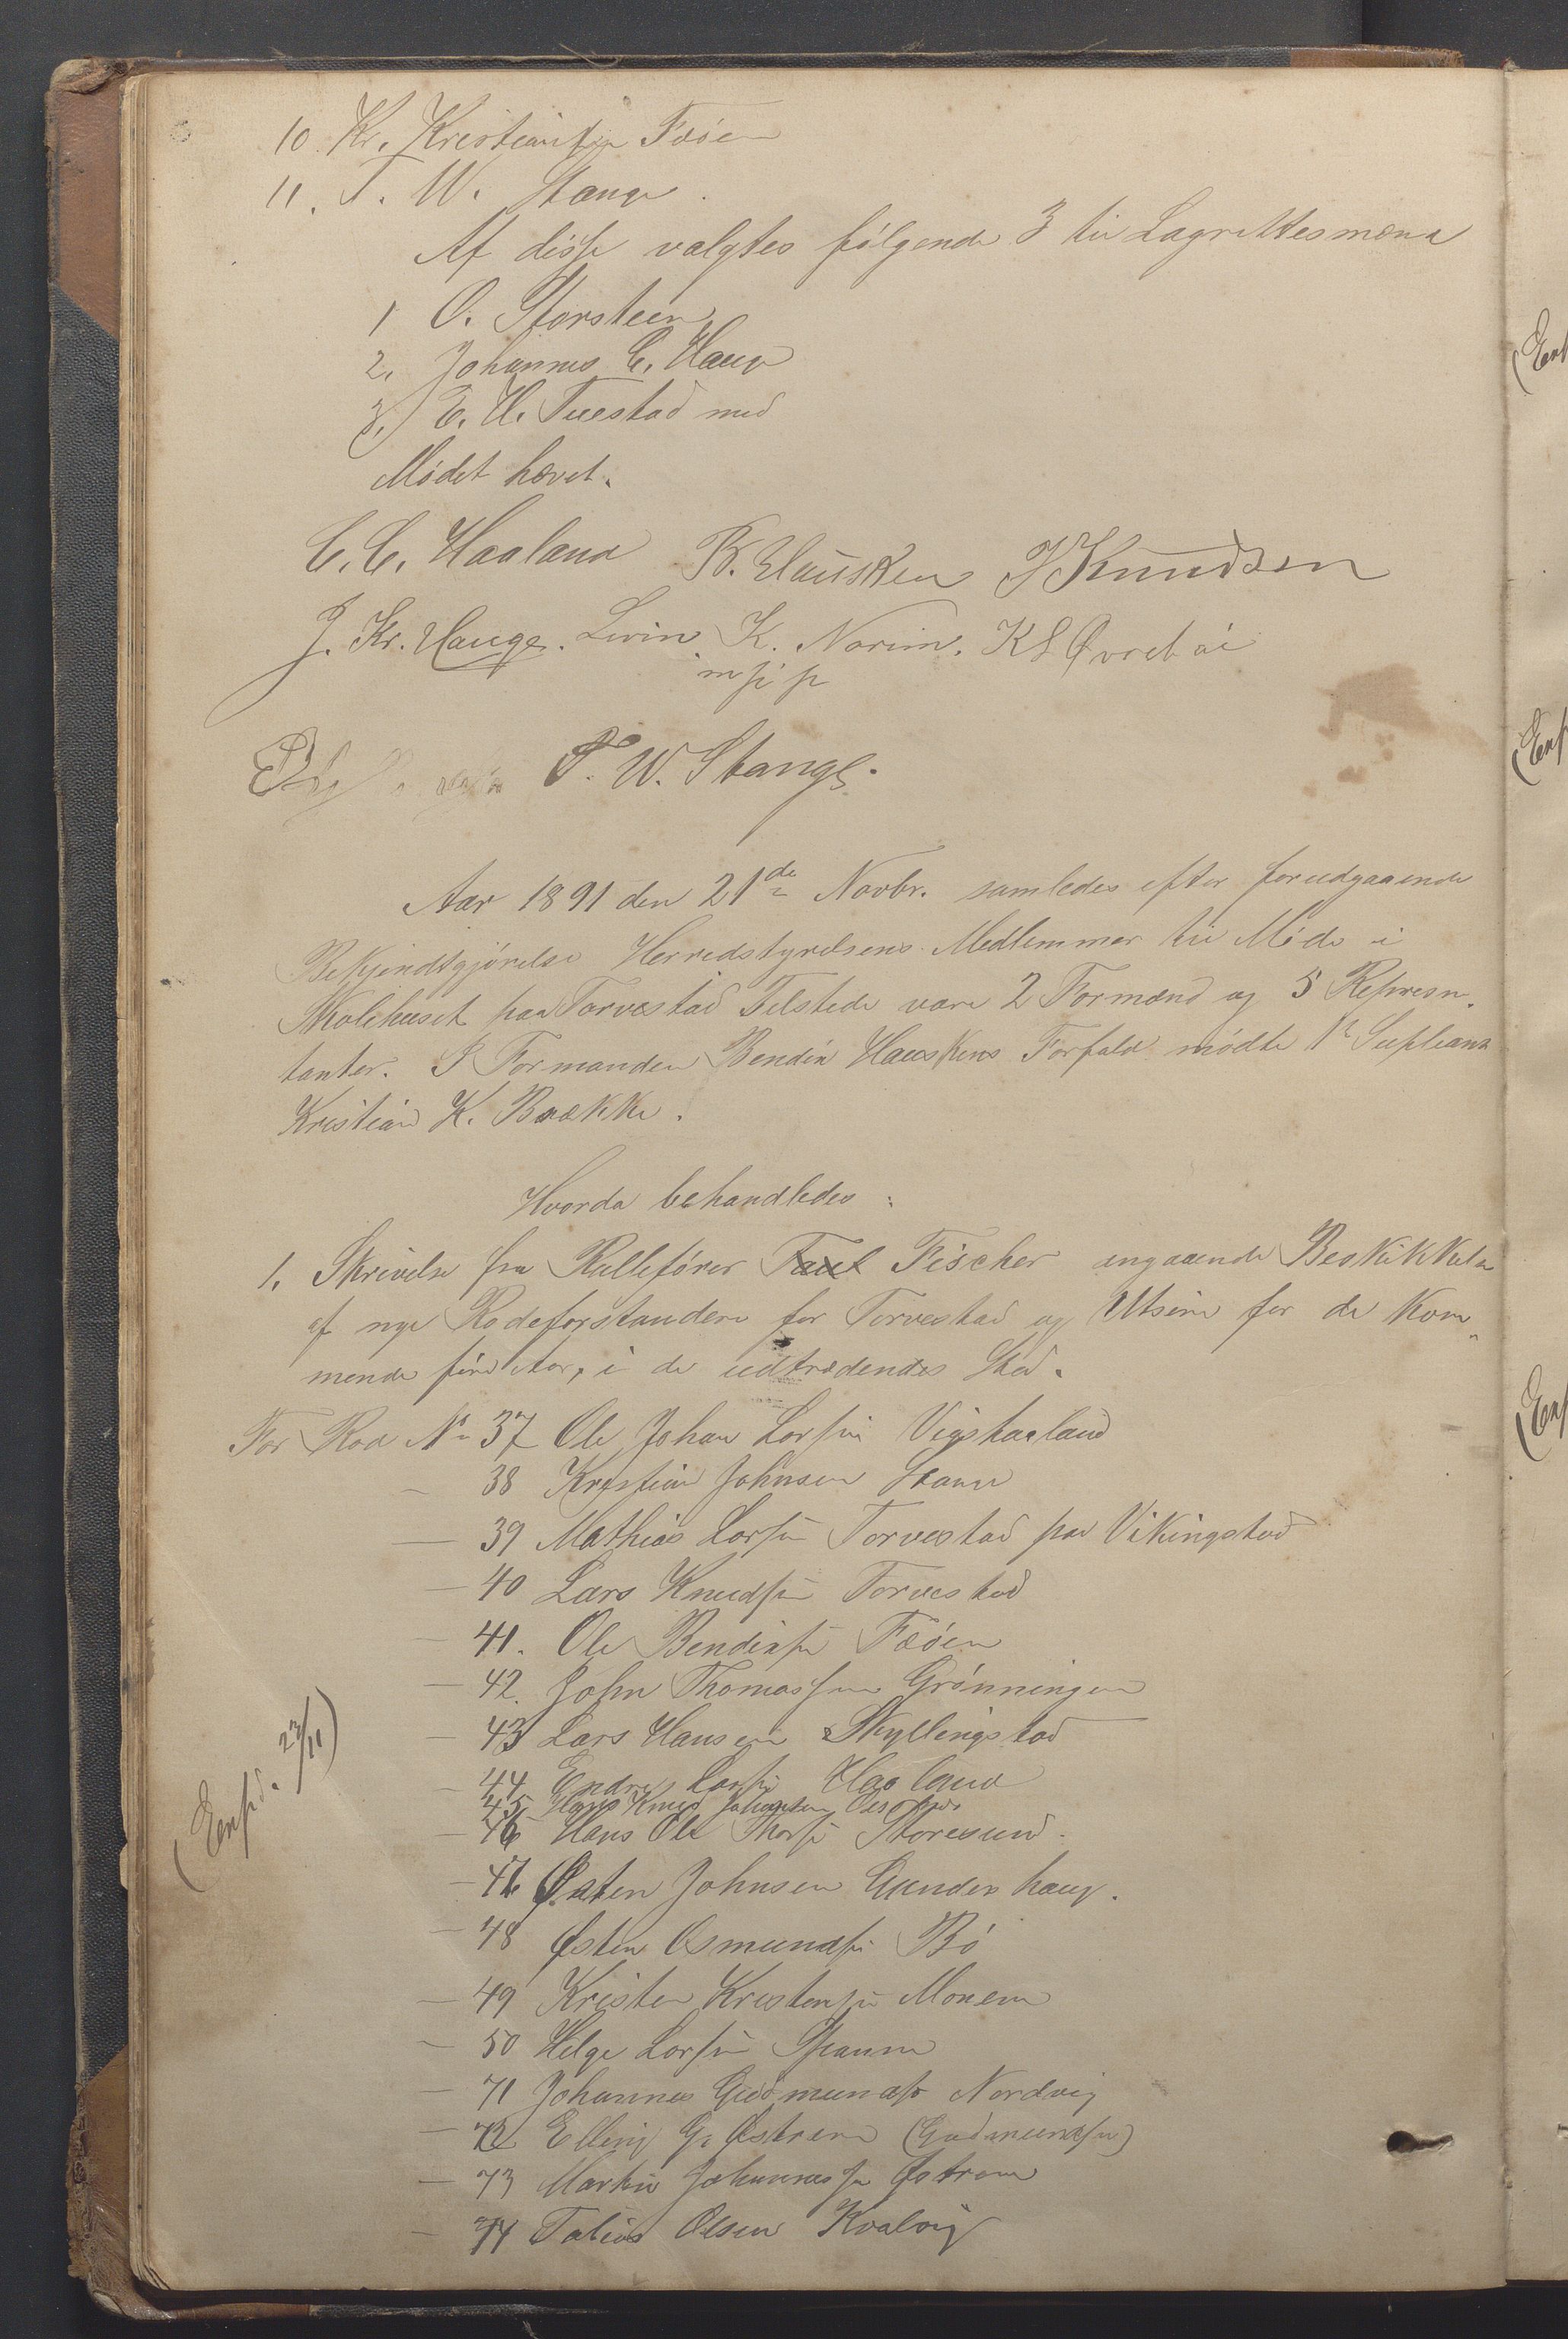 10. Kr. Kristiansen Føøen
11. T. W. Stange.
Af disse valgtes følgende 3 til Lagrettesmænd
1 O. Storsteen
2. Johannes C. Hauge
3.) E. H. Tuestad med
Mødet hævet.
C. C. Haaland B. Hausken J Knudsen
J. Kr. Hauge. Lwin K. Norim. K L Øvrebøe
T. W. Stange.
Aar 1891 den 21de Novbr. samledes efter forudgaaende
Bekjendtgjørelse Herredstyrelsens Medlemmer til Møde i
Skolehuset paa Torvestad Tilstede vare 2 Formænd og 5 Represen-
tanter. I Formanden Bendix Hauskens Forfald mødte 1e Supleant
Kristian K. Bække.
Hvorda behandledes:
1. Skrivelse fra Rullefører Fischer angaaende Beskikkelse
af nye Rodeforstandere for Torvestad og Utsire for de kom-
mende fire Aar, i de udtrædendes Sted.
For Rod No 37 Ole Johan Larsen Vigshaaland
— 38 Kristian Johnsen Stange
— 39 Mathias Larsen Torvestad paa Vikingstad
— 40 Lars Knudsen Torvestad
— 41. Ole Bendixsen Føøen
— 42. John Thomassen Grønningen
— 43 Lars Hansen Skyllingstad
— 44 Endre Larsen Haaland
45 Hans Knud Johannesen
— 46 Hans Ole Thorsen Storesund.
— 47 Østen Johnsen Gunderhaug.
— 48 Østen Osmundsen Bø
— 49 Kristen Kristensen Monem
— 50 Helge Larsen
— 71 Johannes Gudmundsen Nordvig
— 72 Elling G. Østrem (Gudmundsen)
— 73 Martin Johannessen Østrem
— 74 Tobias Olsen Kvalvig
(Exp. d. 23/11)